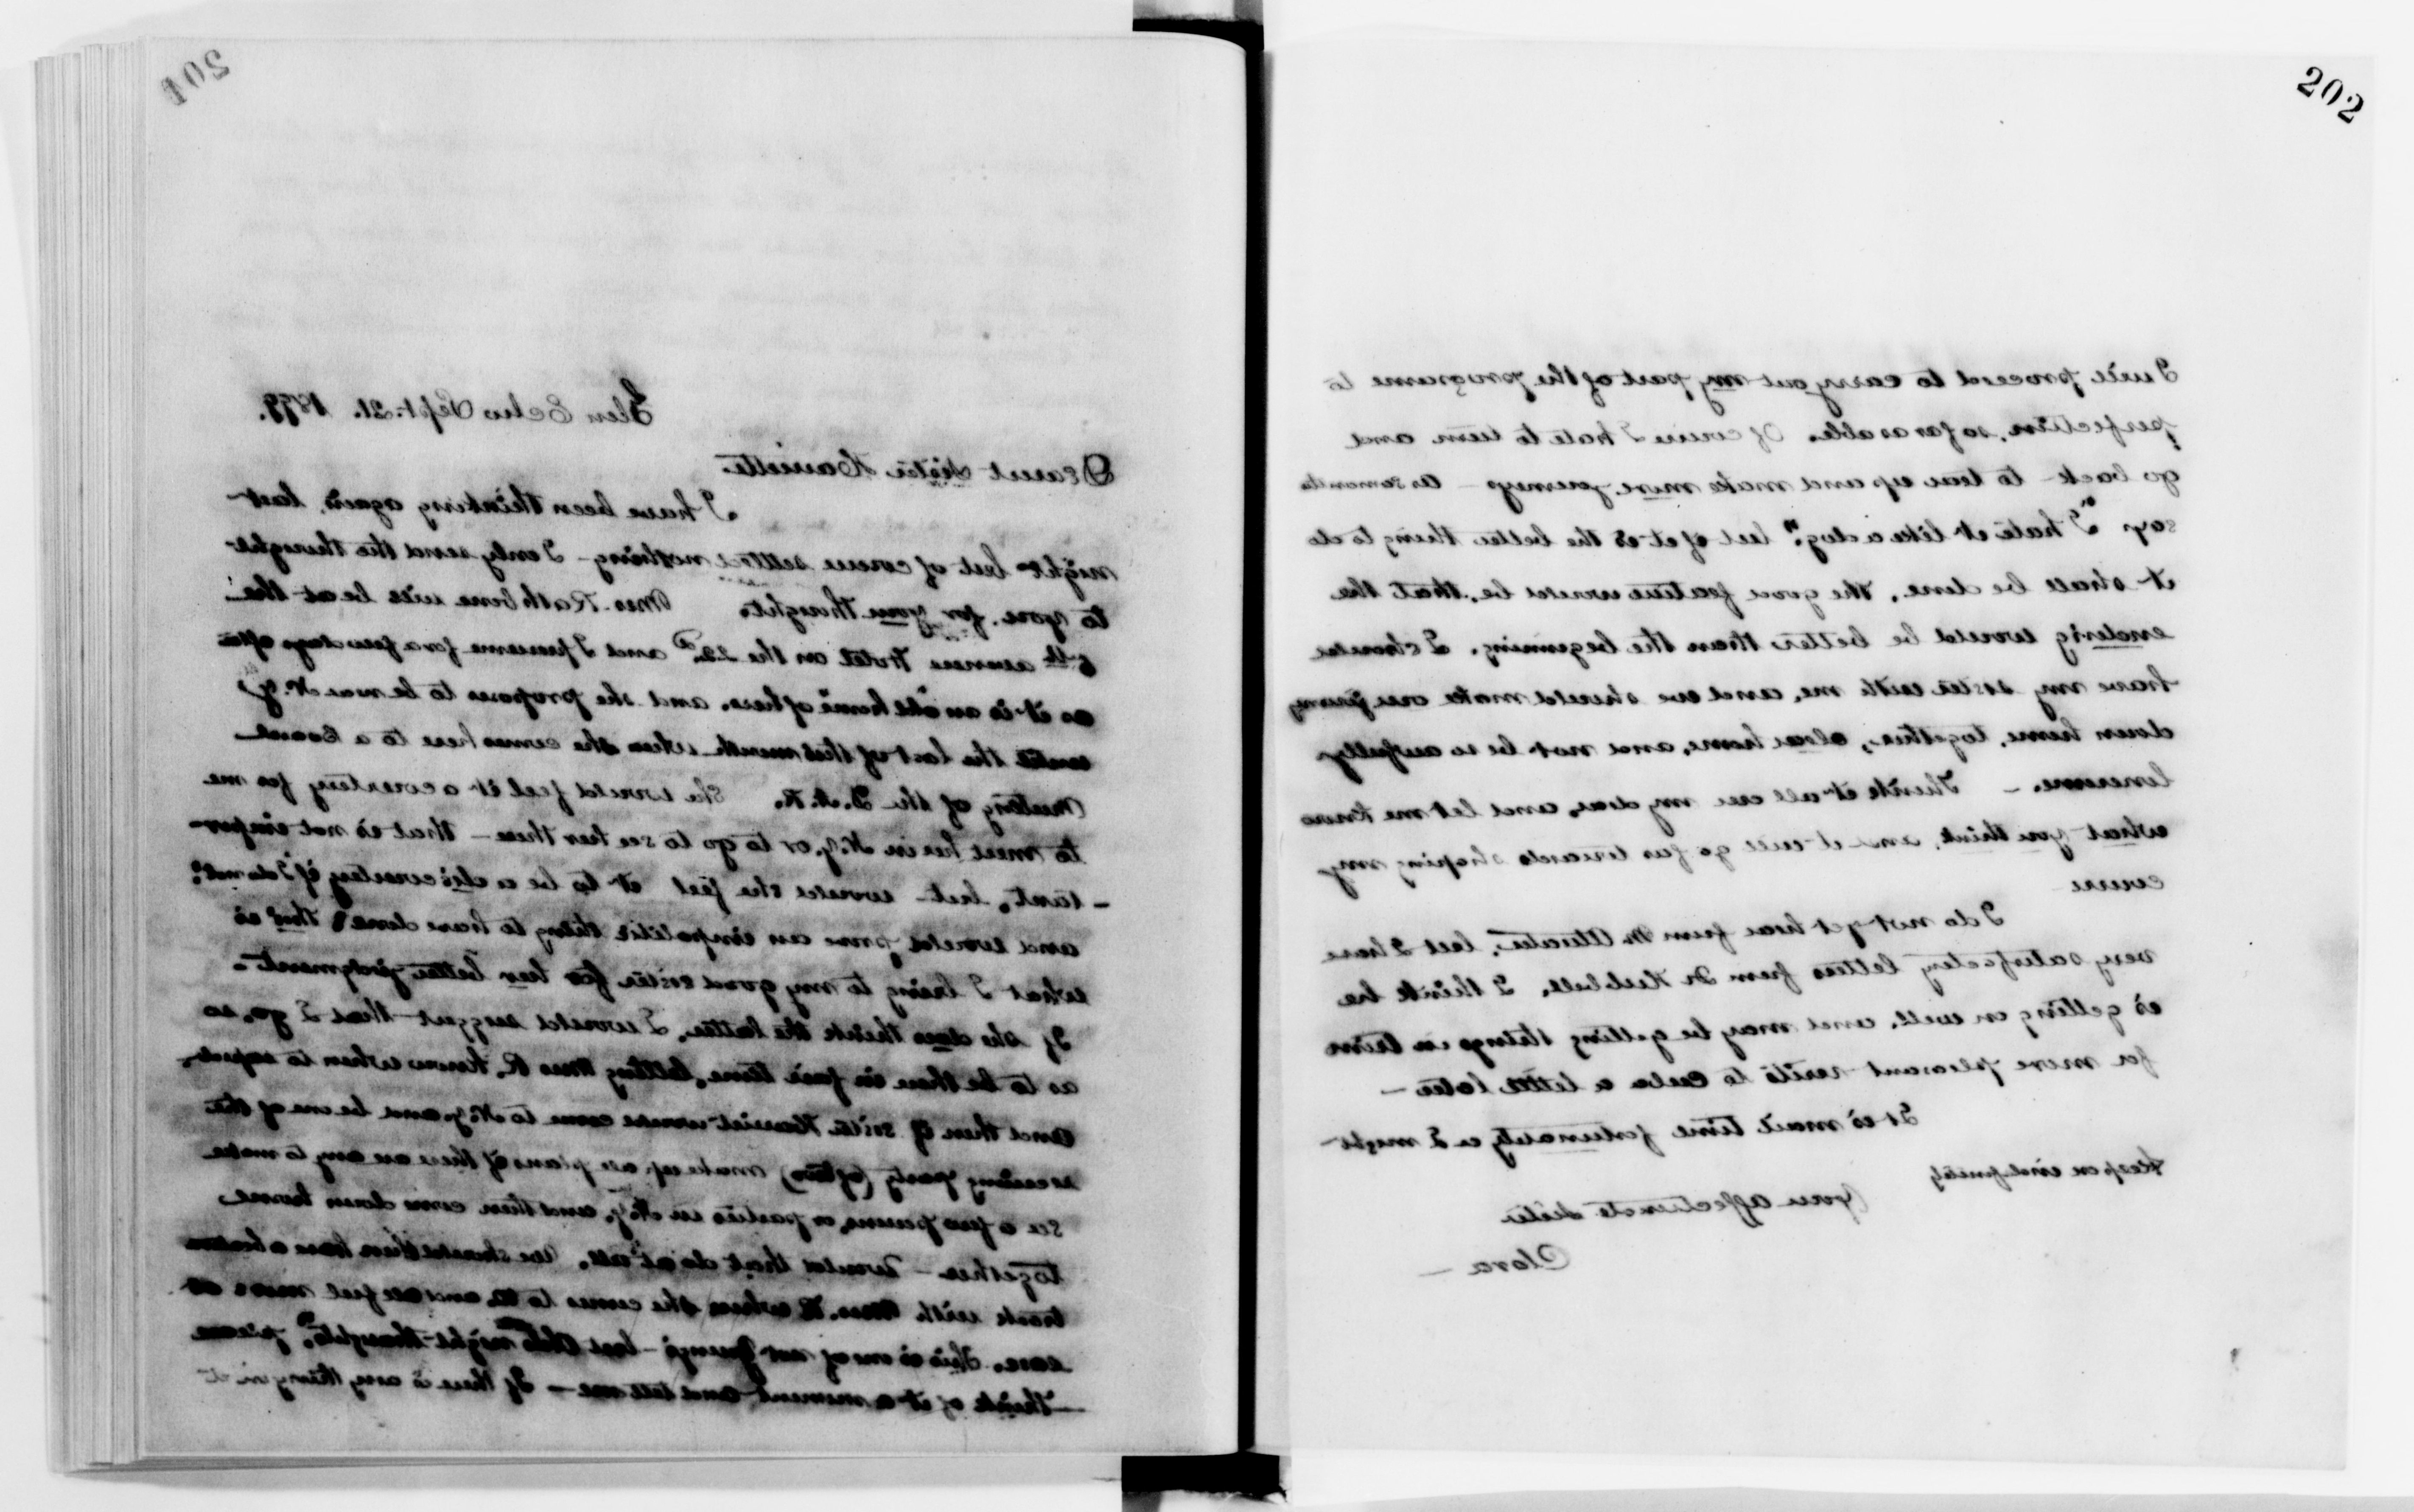 201
Glen Echo Sept. 21. 1899.
Dearest Sister Harriette
I have been thinking again, last
night but of course settled nothing – I only send the thought
to you, for your thought. Mrs. Rathbone will be at the
5th avenue Hotel on the 22nd and I presume for a few days after
as it is an old home of hers, and she proposes to be near N.Y.
until the last of this month when she comes here to a Board
Meeting of the D.A.R. She would feel it a courtesy for me
to meet her in N.Y. or to go to see her there – that is not impor-
– tant, but would she feel it to be a discourtesy if I do not?
and would prove an impolitic thing to have done? this is
what I bring to my good sister for her better judgment –
If she does think the latter, I would suggest that I go, so
as to be there in fair time, letting Mrs R. know when to expect,
and then if sister Harriet would come to N.Y. and be one of the
receiving party (of two) make up all plans if there are any to make
see a few persons, or parties in N.Y. and then come down home
together – would that do at all. We should then have a
with Mrs. R when she comes to and all feel more at
ease. This is one of "last night thoughts", please
think of it a moment and tell me – If there is any thing in it
202
I will proceed to carry out my part of the programe to
perfection, so far as able. Of course I hate to turn and
go back – to tear up and make more journeys – as
say "I hate it like a dog", but if it is the better thing to do
it shall be done. The good feature would be, that the
ending would be better than the beginning. I should
have my sister with me, and we should make our journey
down home, together, dear home, and not be so awfully
lonesome. – Think it all over my dear, and let me know
what you think, and it will go far towards shaping my
course
I do not yet hear from Mr Atwater, but I have
very satisfactory letters from Dr Hubbell, I think he
is getting on well, and may be getting things in trim
for more pleasant visits to Cuba a little later –
It is mail time fortunately or I might
keep on indefinitely
Your affectionate sister
Clara –